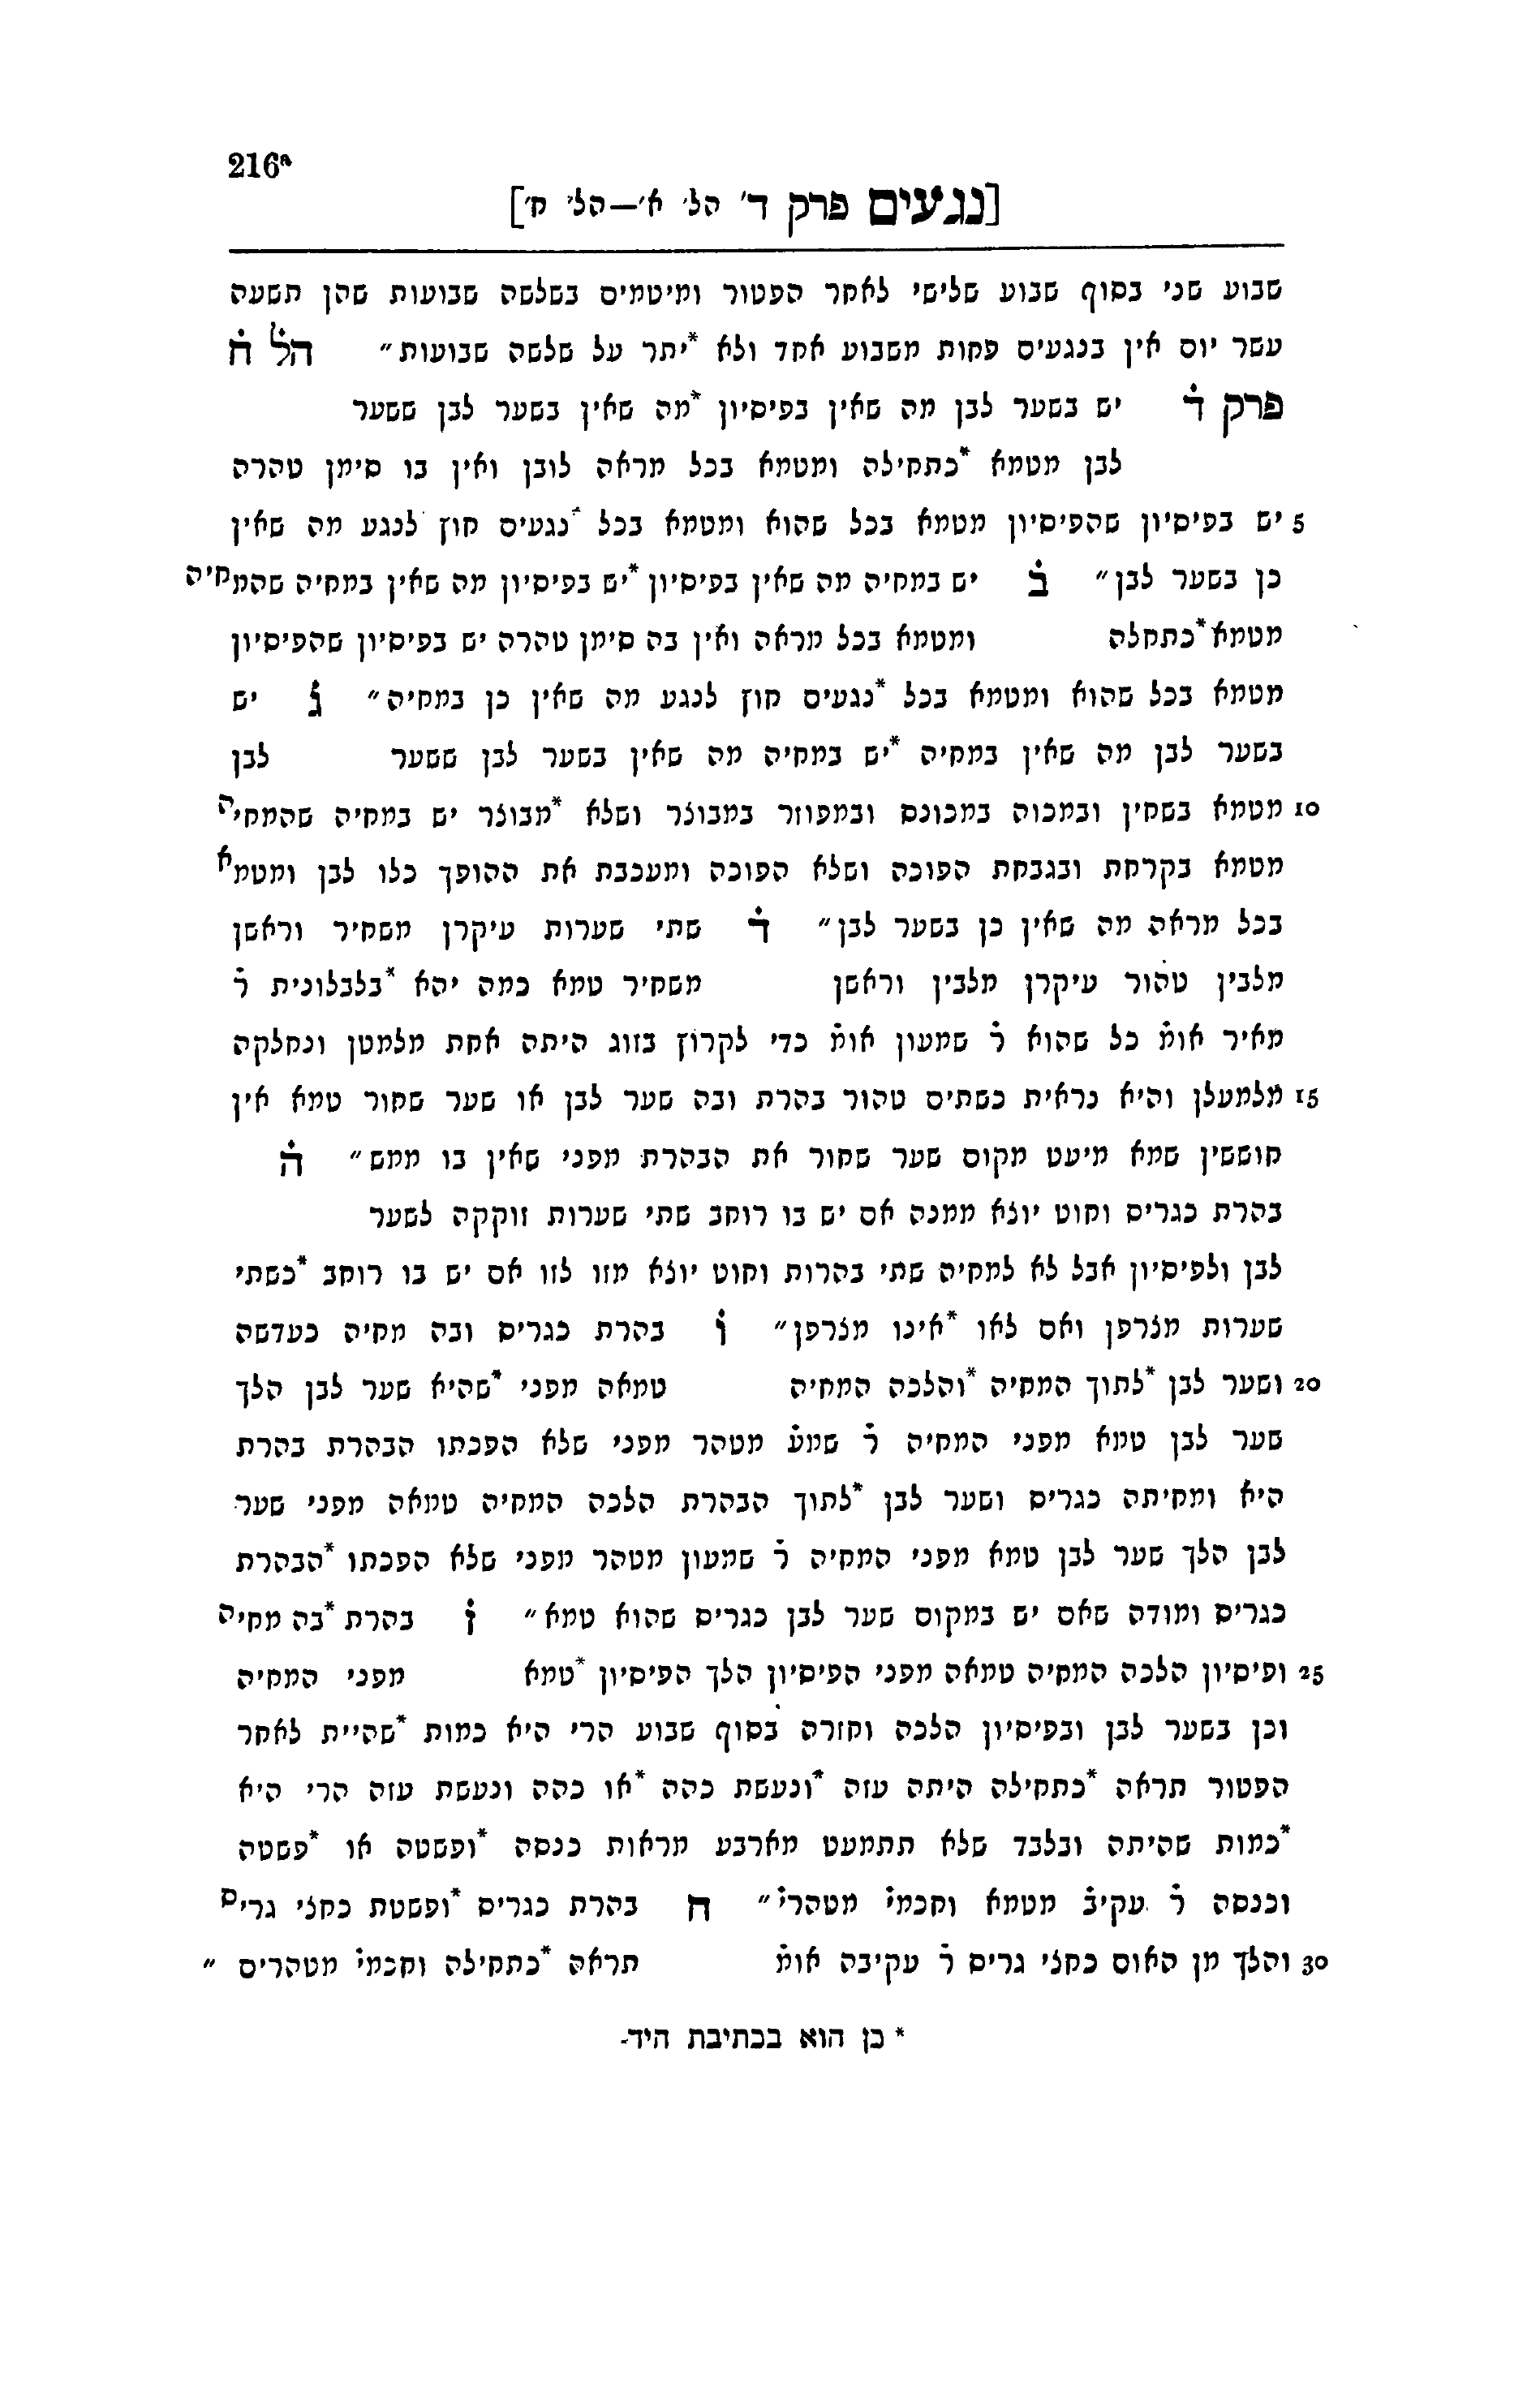 216ª
[נגעים פרק ד' הל' א'—הל' ח']
שבוע שני בסוף שבוע שלישי לאחר הפטור ומיטמים בשלשה שבועות שהן תשעה
עשר יום אין בנגעים פחות משבוע אחד ולא *יתר על שלשה שבועות״ הל ח̇
פרק ד̇ יש בשער לבן מה שאין בפיסיון *מה שאין בשער לבן ששער
לבן מטמא *כתחילה ומטמא בכל מראה לובן ואין בו סימן טהרה
5 יש בפיסיון שהפיסיון מטמא בכל שהוא ומטמא בכל *נגעים חוץ לנגע מה שאין
כן בשער לבן״ ב̇ יש במחיה מה שאין בפיסיון *יש בפיסיון מה שאין במחיה שהמחיה
מטמא *כתחלה ומטמא בכל מראה ואין בה סימן טהרה יש בפיסיון שהפיסיון
מטמא בכל שהוא ומטמא בכל *נגעים חוץ לנגע מה שאין כן במחיה״ ג̇ יש
בשער לבן מה שאין במחיה *יש במחיה מה שאין בשער לבן ששער לבן
10 מטמא בשחין ובמכוה במכונס ובמפוזר במבוצר ושלא *מבוצר יש במחיה שהמחיה
מטמא בקרחת ובגבחת הפוכה ושלא הפוכה ומעכבת את ההופך כלו לבן ומטמא
בכל מראה מה שאין כן בשער לבן״ ד̇ שתי שערות עיקרן משחיר וראשן
מלבין טהור עיקרן מלבין וראשן משחיר טמא כמה יהא *בלבלונית ר̇
מאיר אומ̇ כל שהוא ר̇ שמעון אומ̇ כדי לקרוץ בזוג היתה אחת מלמטן ונחלקה
15 מלמעלן והיא נראית כשתים טהור בהרת ובה שער לבן או שער שחור טמא אין
חוששין שמא מיעט מקום שער שחור את הבהרת מפני שאין בו ממש״ ה̇
בהרת כגריס וחוט יוצא ממנה אם יש בו רוחב שתי שערות זוקקה לשער
לבן ולפיסיון אבל לא למחיה שתי בהרות וחוט יוצא מזו לזו אם יש בו רוחב *כשתי
שערות מצרפן ואם לאו *אינו מצרפן״ ו̇ בהרת כגריס ובה מחיה כעדשה
20 ושער לבן *לתוך המחיה *והלכה המחיה טמאה מפני *שהיא שער לבן הלך
שער לבן טמא מפני המחיה ר̇ שמע̇ מטהר מפני שלא הפכתו הבהרת בהרת
היא ומחיתה כגריס ושער לבן *לתוך הבהרת הלכה המחיה טמאה מפני שער
לבן הלך שער לבן טמא מפני המחיה ר̇ שמעון מטהר מפני שלא הפכתו *הבהרת
כגריס ומודה שאם יש במקום שער לבן כגריס שהוא טמא״ ז̇ בהרת *בה מחיה
25 ופיסיון הלכה המחיה טמאה מפני הפיסיון הלך הפיסיון *טמא מפני המחיה
וכן בשער לבן ובפיסיון הלכה וחזרה בסוף שבוע הרי היא כמות *שהיית לאחר
הפטור תראה *כתחילה היתה עזה *ונעשת כהה *או כהה ונעשת עזה הרי היא
*כמות שהיתה ובלבד שלא תתמעט מארבע מראות כנסה *ופשטה או *פשטה
וכנסה ר̇ עקיב̇ מטמא וחכמי̇ מטהרי̇״ ח בהרת כגריס *ופשטת כחצי גריס
30 והלך מן האום כחצי גריס ר̇ עקיבה אומ̇ תראה *כתחילה וחכמי̇ מטהרים״
* כן הוא בכתיבת היד.